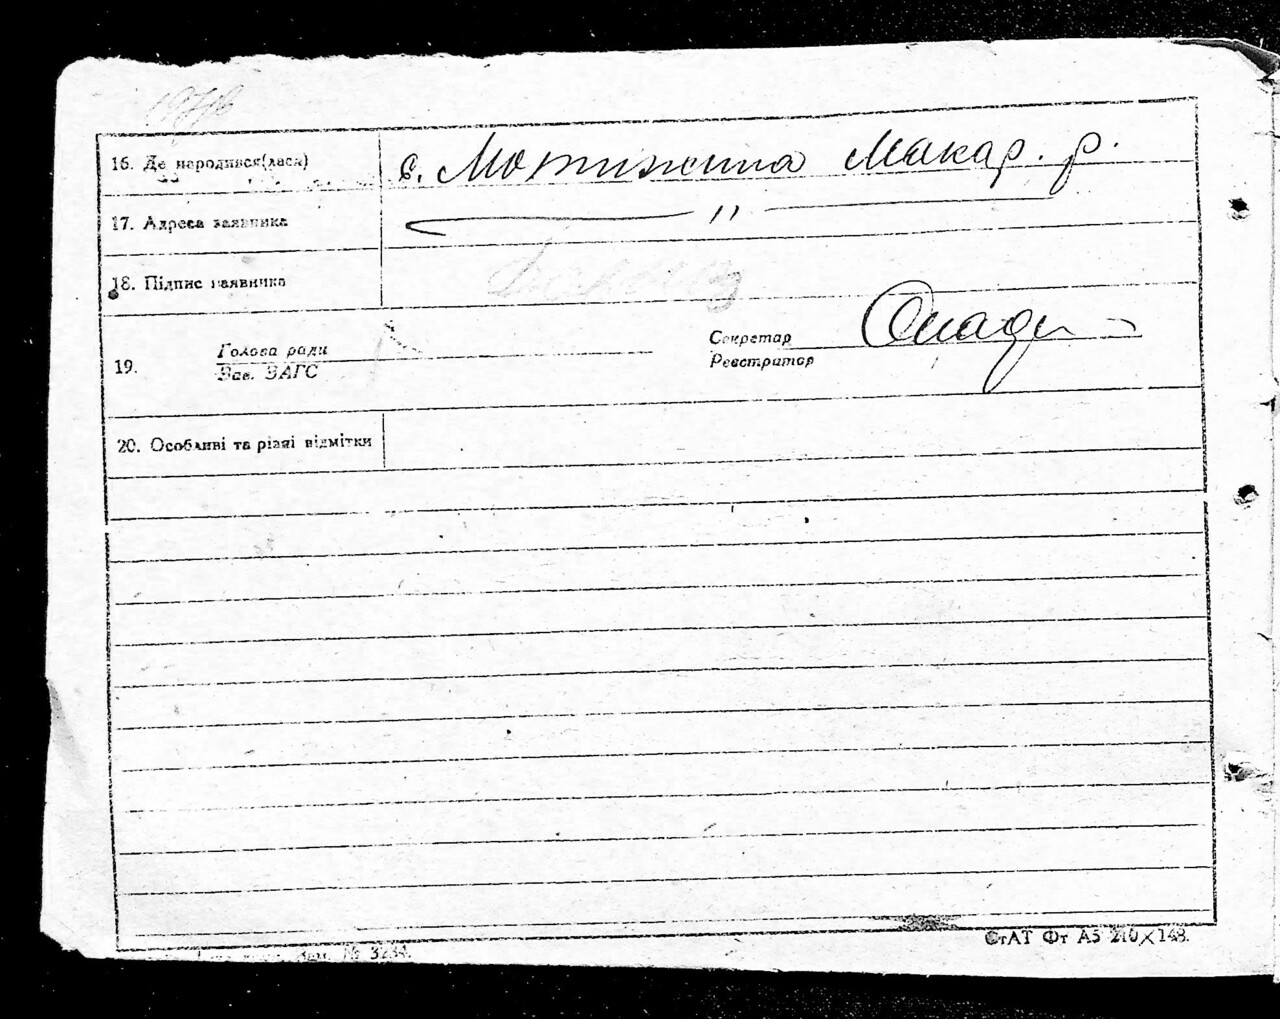 16. Де народився(лася) с. Мотижина Макар. р.
17. Адреса заявника — " —
18. Підпис заявника
19. Голова ради
Зав. ЗАГС
Секретар
Реєстратор
20. Особливі та різні відмітки
Зам. № 3234.
СтАТ Фт А5 210×148.